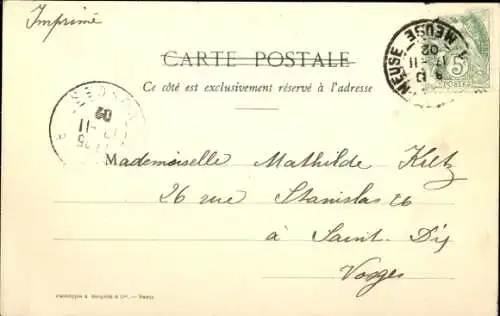 Imprimé
CARTE POSTALE
Ce côté est exclusivement réservé à l'adresse
MEUSE
MEUSE
17-11
02
5
POSTES
VOSGES
17-11
02
Mademoiselle Mathilde Kletz
26 rue Stanislas 26
à Saint-Dié
Vosges